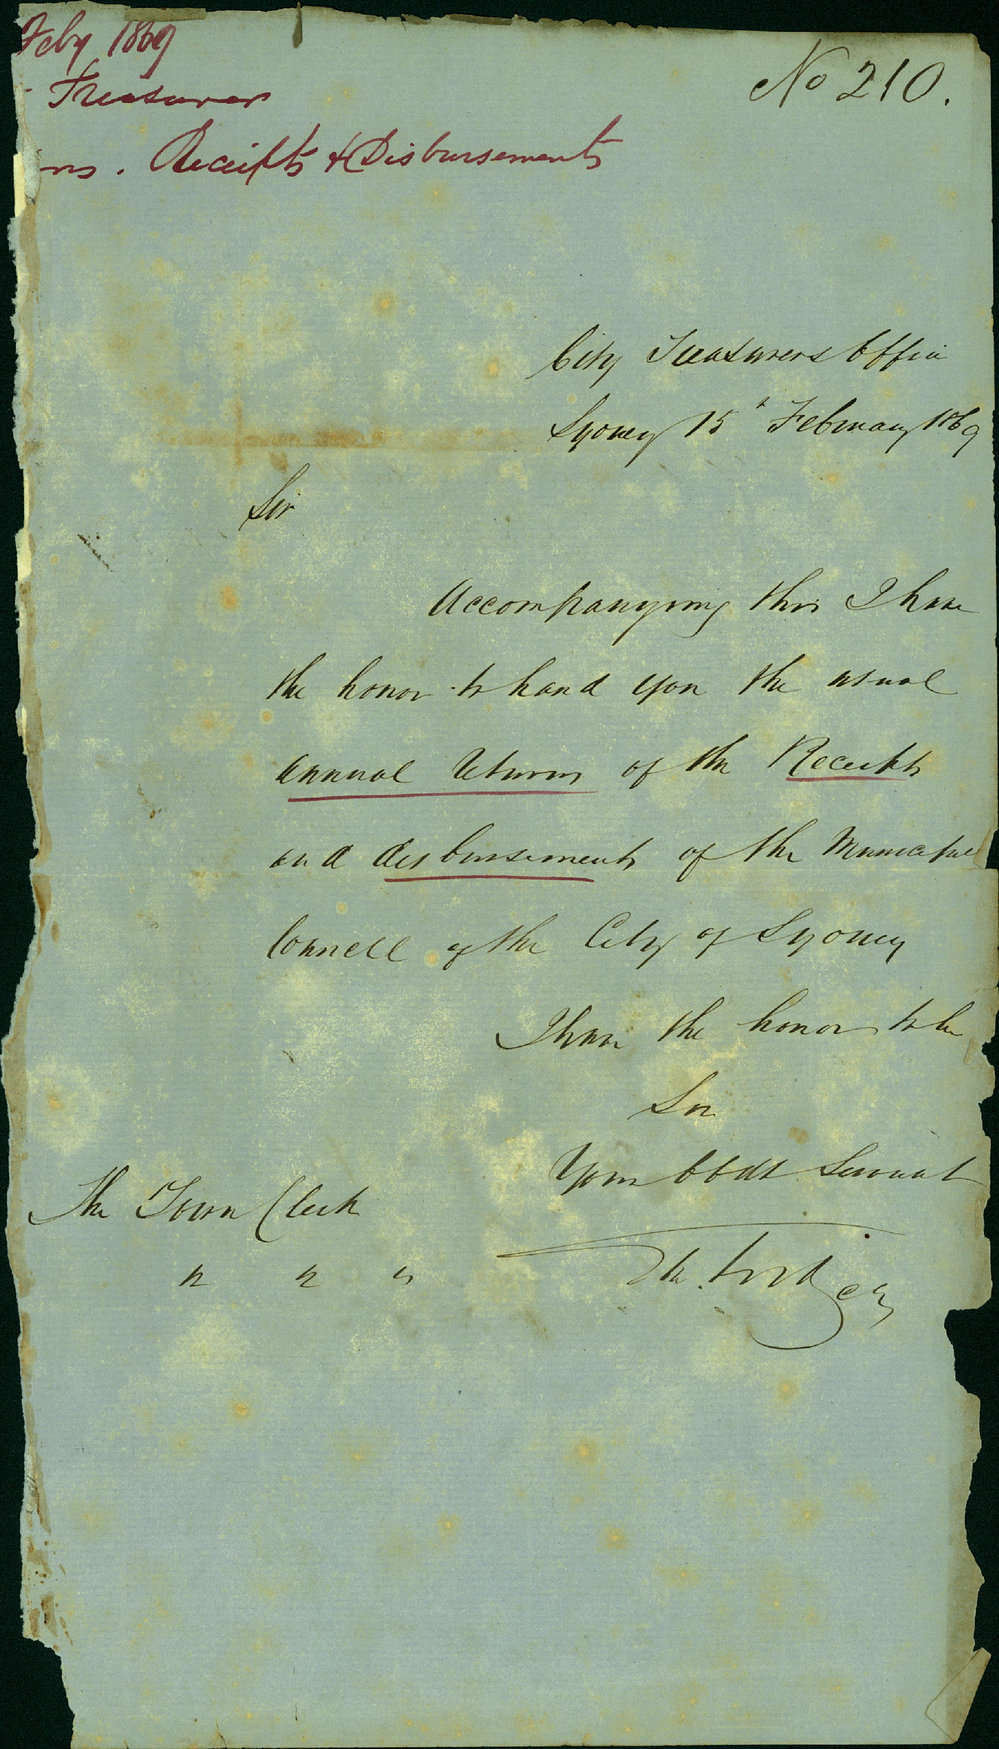 Feby 1869
No 210.
Treasurer
ns. Receipts & Disbursements
City Treasurers Office
Sydney 15th February 1869
Sir
Accompanying this I have
the honor to hand you the usual
annual returns of the Receipts
and disbursements of the Municipal
Council of the City of Sydney
I have the honor to be
Sir
Your Obdt Servant
The Town Clerk
" " "